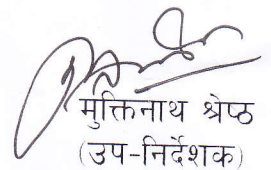 मुक्तिनाथ श्रेष्ठ
(उप-निर्देशक)